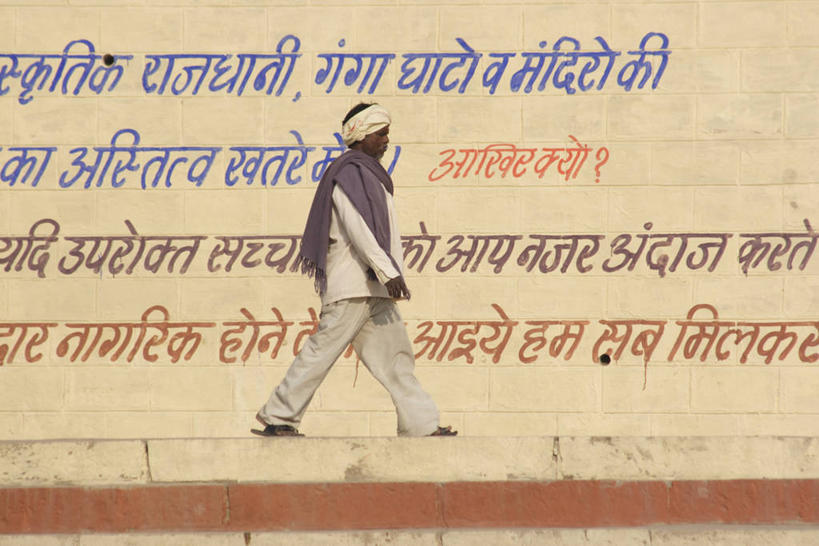 स्कृतिक राजधानी, गंगा घाटो व मंदिरो की
का अस्तित्व खतरे में । आखिर क्यों ?
यदि उपरोक्त सच्चा को आप नजर अंदाज करते
दार नागरिक होने आइये हम सब मिलकर